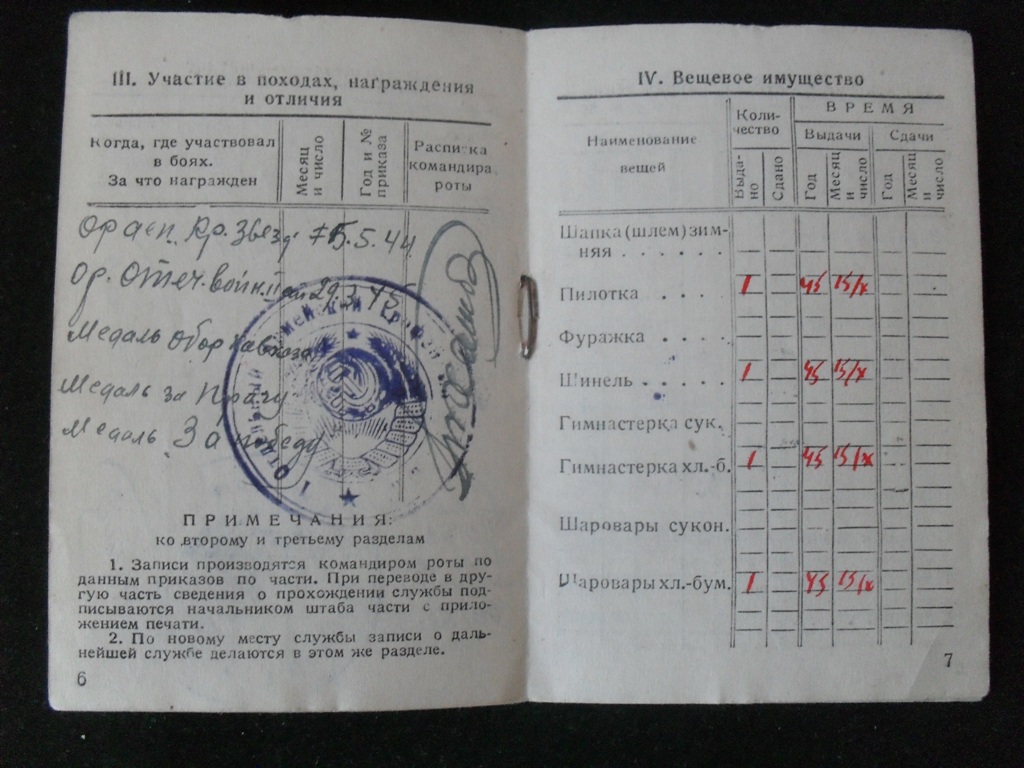 III. Участие в походах, награждения
и отличия
Когда, где участвовал
в боях.
За что награжден
Месяц
и число
Год и №
приказа
Расписка
командира
роты
Орден Кр. Звезд 5.5.44
Ор. Отеч. войны 29.3.45
Медаль Обор Кавказа
Медаль за Прагу
Медаль За победу
ПРИМЕЧАНИЯ:
ко второму и третьему разделам
1. Записи производятся командиром роты по
данным приказов по части. При переводе в дру-
гую часть сведения о прохождении службы под-
писываются начальником штаба части с прило-
жением печати.
2. По новому месту службы записи о даль-
нейшей службе делаются в этом же разделе.
6
IV. Вещевое имущество
Наименование
вещей
Коли-
чество
ВРЕМЯ
Выдачи
Сдачи
Выда-
но
Сдано
Год
Месяц
и
число
Год
Месяц
и
число
Шапка (шлем) зим-
няя . . . . . .
Пилотка . . . . 1 45 15/x
Фуражка . . . .
Шинель . . . . . 1 45 15/x
Гимнастерка сук.
Гимнастерка хл.-б. 1 45 15/x
Шаровары сукон.
Шаровары хл.-бум. 1 45 15/x
7